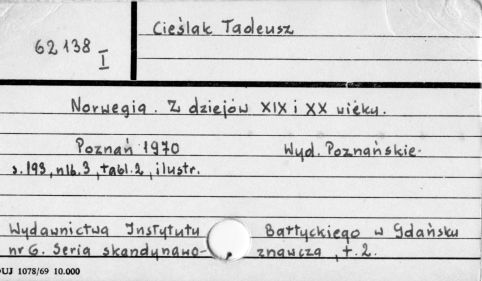 Cieślak Tadeusz
62138
I
Norwegia. Z dziejów XIX i XX wieku.
Poznań 1970 Wyd. Poznańskie.
s.193, nlb.3, tabl.2, ilustr.
Wydawnictwa Instytutu Bałtyckiego w Gdańsku
nr 6. Seria skandynawo- znawcza, t.2.
UJ 1078/69 10.000